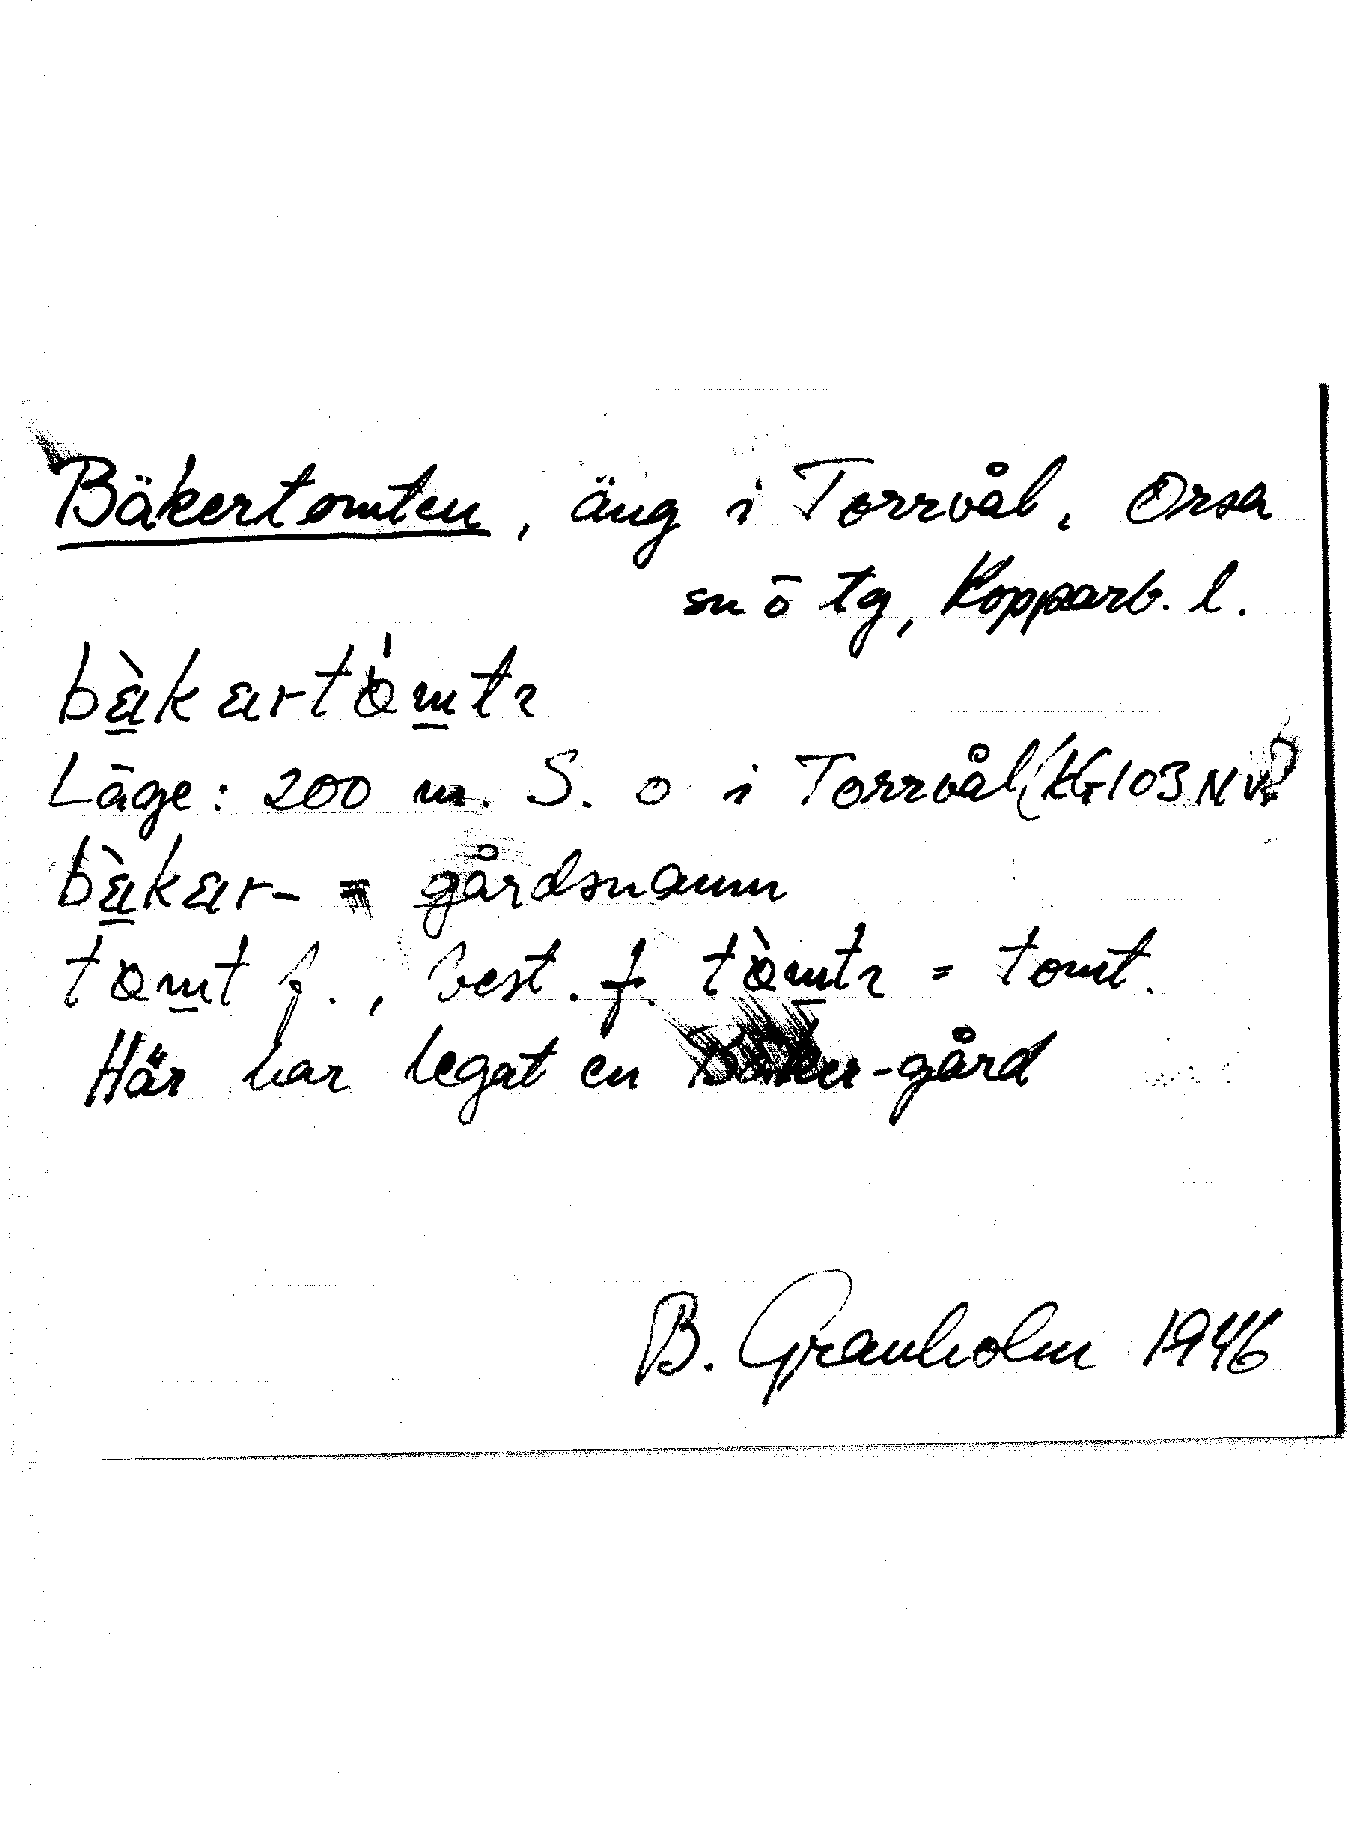 Bäkertomten, äng i Torrvål, Orsa
sn o tg, Kopparb. l.
bàkartòmtı
Läge: 200 m. S. o i Torrvål (KG103NV?)
bàkar- = gårdsnamn
tomt f., best. f. tòmtı = tomt.
Här har legat en Bäker-gård
B. Granholm 1946